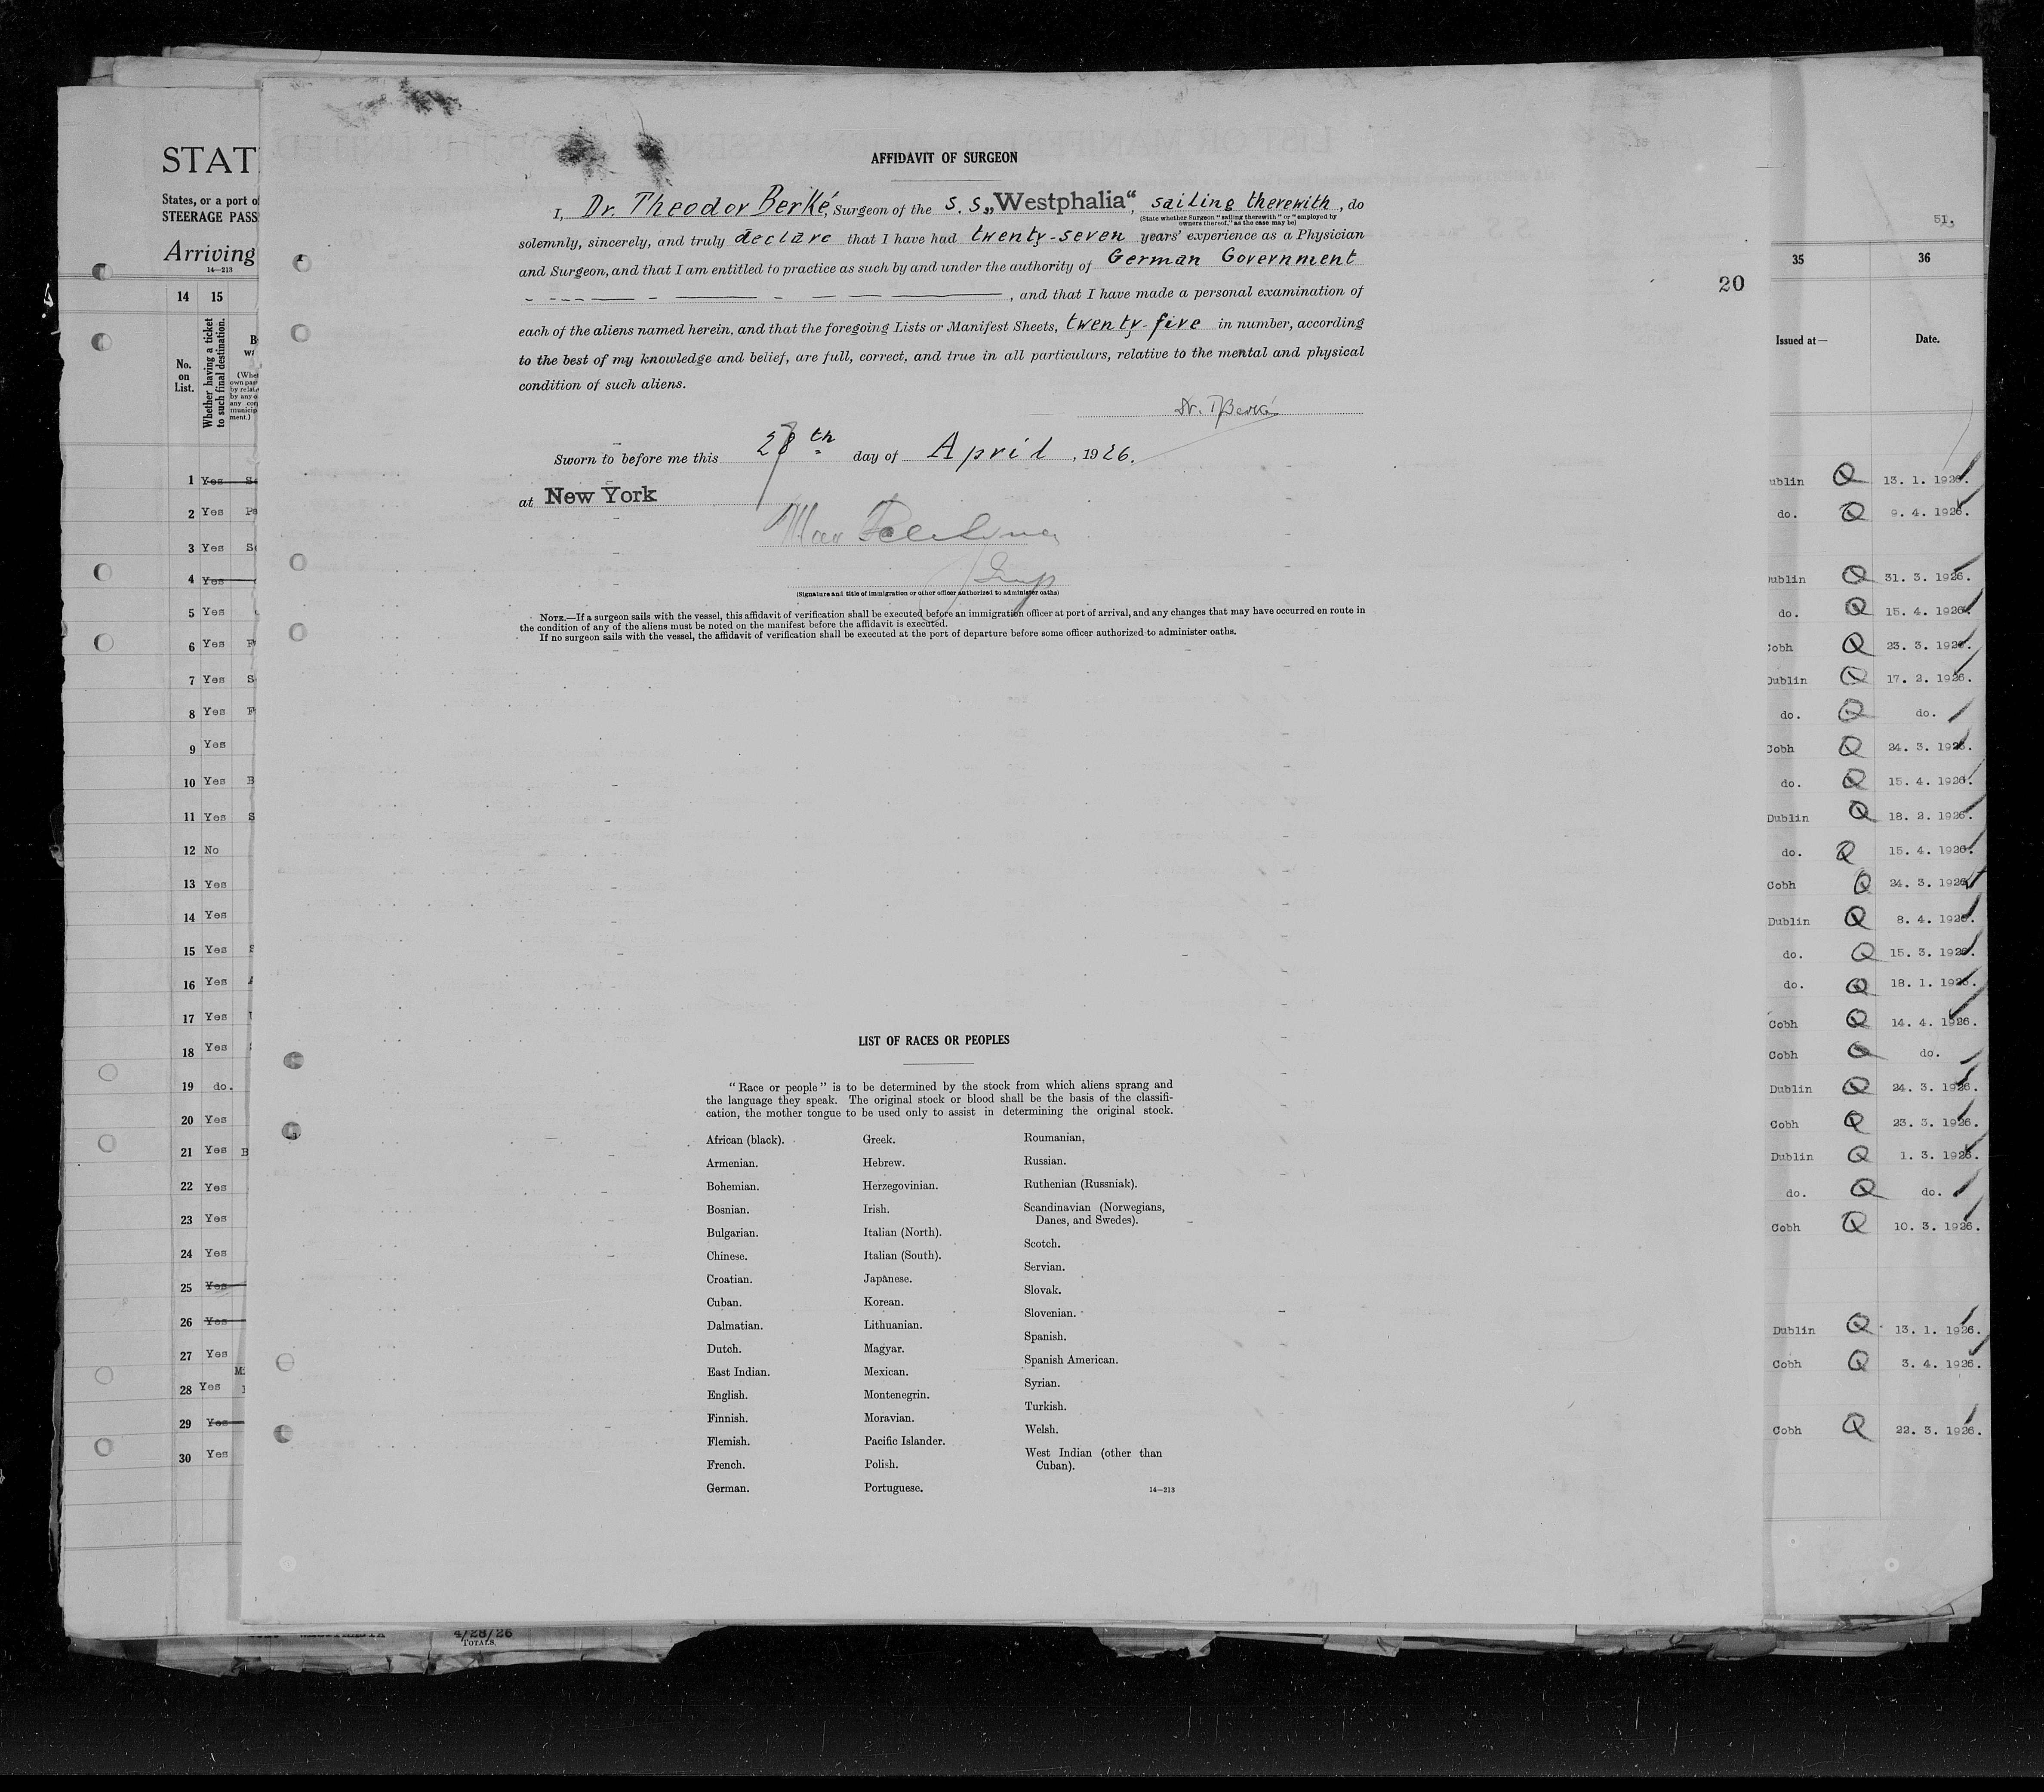 AFFIDAVIT OF SURGEON
I, Dr. Theodor Berké, Surgeon of the S.S. „Westphalia“, sailing therewith, do
(State whether Surgeon "sailing therewith" or "employed by
owners thereof," as the case may be)
solemnly, sincerely, and truly declare that I have had twenty-seven years' experience as a Physician
and Surgeon, and that I am entitled to practice as such by and under the authority of German Government
, and that I have made a personal examination of
each of the aliens named herein, and that the foregoing Lists or Manifest Sheets, twenty-five in number, according
to the best of my knowledge and belief, are full, correct, and true in all particulars, relative to the mental and physical
condition of such aliens.
Dr. T Berké
Sworn to before me this 28th day of April, 1926.
at New York
Max
Insp
(Signature and title of immigration or other officer authorized to administer oaths)
NOTE.—If a surgeon sails with the vessel, this affidavit of verification shall be executed before an immigration officer at port of arrival, and any changes that may have occurred en route in
the condition of any of the aliens must be noted on the manifest before the affidavit is executed.
If no surgeon sails with the vessel, the affidavit of verification shall be executed at the port of departure before some officer authorized to administer oaths.
20
LIST OF RACES OR PEOPLES
"Race or people" is to be determined by the stock from which aliens sprang and
the language they speak. The original stock or blood shall be the basis of the classifi-
cation, the mother tongue to be used only to assist in determining the original stock.
African (black).
Armenian.
Bohemian.
Bosnian.
Bulgarian.
Chinese.
Croatian.
Cuban.
Dalmatian.
Dutch.
East Indian.
English.
Finnish.
Flemish.
French.
German.
Greek.
Hebrew.
Herzegovinian.
Irish.
Italian (North).
Italian (South).
Japanese.
Korean.
Lithuanian.
Magyar.
Mexican.
Montenegrin.
Moravian.
Pacific Islander.
Polish.
Portuguese.
Roumanian.
Russian.
Ruthenian (Russniak).
Scandinavian (Norwegians,
Danes, and Swedes).
Scotch.
Servian.
Slovak.
Slovenian.
Spanish.
Spanish American.
Syrian.
Turkish.
Welsh.
West Indian (other than
Cuban).
14—213
STAT
States, or a port o
STEERAGE PASS
Arriving
14—213
14 15
No.
on
List.
Whether having a ticket
to such final destination.
1 Yes
2 Yes
3 Yes
4 Yes
5 Yes
6 Yes
7 Yes
8 Yes
9 Yes
10 Yes
11 Yes
12 No
13 Yes
14 Yes
15 Yes
16 Yes
17 Yes
18 Yes
19 do.
20 Yes
21 Yes
22 Yes
23 Yes
24 Yes
25 Yes
26 Yes
27 Yes
28 Yes
29 Yes
30 Yes
51,
35 36
Issued at— Date.
ublin Q 13. 1. 1926.
do. Q 9. 4. 1926.
ublin Q 31. 3. 1926.
do. Q 15. 4. 1926.
Cobh Q 23. 3. 1926.
Dublin Q 17. 2. 1926.
do. Q do.
Cobh Q 24. 3. 1926.
do. Q 15. 4. 1926.
Dublin Q 18. 2. 1926.
do. Q 15. 4. 1926.
Cobh Q 24. 3. 1926.
Dublin Q 8. 4. 1926.
do. Q 15. 3. 1926.
do. Q 18. 1. 1926.
Cobh Q 14. 4. 1926.
Cobh Q do.
Dublin Q 24. 3. 1926.
Cobh Q 23. 3. 1926.
Dublin Q 1. 3. 1926.
do. Q do.
Cobh Q 10. 3. 1926.
Dublin Q 13. 1. 1926.
Cobh Q 3. 4. 1926.
Cobh Q 22. 3. 1926.
4/28/26
TOTALS.